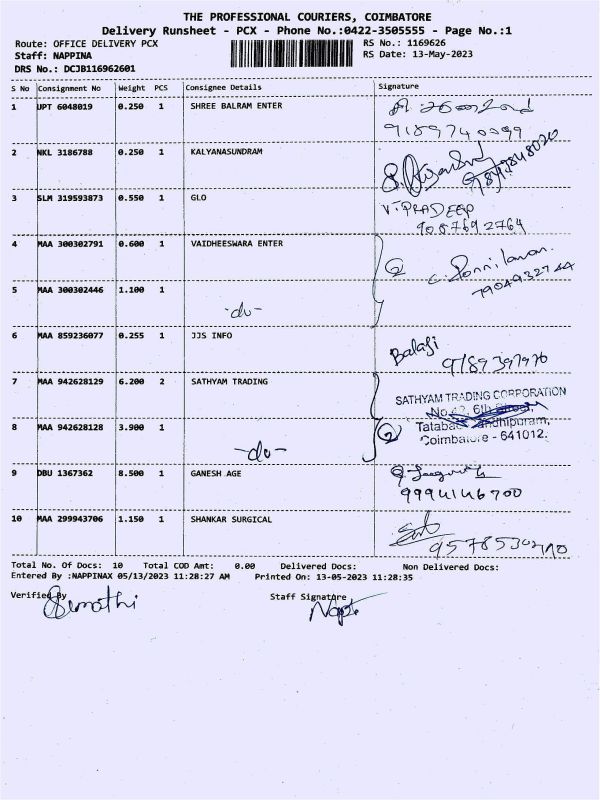 THE PROFESSIONAL COURIERS, COIMBATORE
Delivery Runsheet - PCX - Phone No.:0422-3505555 - Page No.:1
Route: OFFICE DELIVERY PCX RS No.: 1169626
Staff: NAPPINA RS Date: 13-May-2023
DRS No.: DCJB116962601
S No Consignment No Weight PCS Consignee Details Signature
1 UPT 6048019 0.250 1 SHREE BALRAM ENTER
9189740999
2 NKL 3186788 0.250 1 KALYANASUNDRAM
3 SLM 319593873 0.550 1 GLO V. PRADEEP
9087692764
4 MAA 300302791 0.600 1 VAIDHEESWARA ENTER 2
5 MAA 300302446 1.100 1 -do- 7904932744
6 MAA 859236077 0.255 1 JJS INFO Balaji
9789397970
7 MAA 942628129 6.200 2 SATHYAM TRADING SATHYAM TRADING CORPORATION
6th Street,
8 MAA 942628128 3.900 1 -do- 2 Tatabad, Gandhipuram,
Coimbatore - 641012.
9 DBU 1367362 8.500 1 GANESH AGE
9994146700
10 MAA 299943706 1.150 1 SHANKAR SURGICAL
Total No. Of Docs: 10 Total COD Amt: 0.00 Delivered Docs: Non Delivered Docs:
Entered By :NAPPINAX 05/13/2023 11:28:27 AM Printed On: 13-05-2023 11:28:35
Verified By Staff Signature